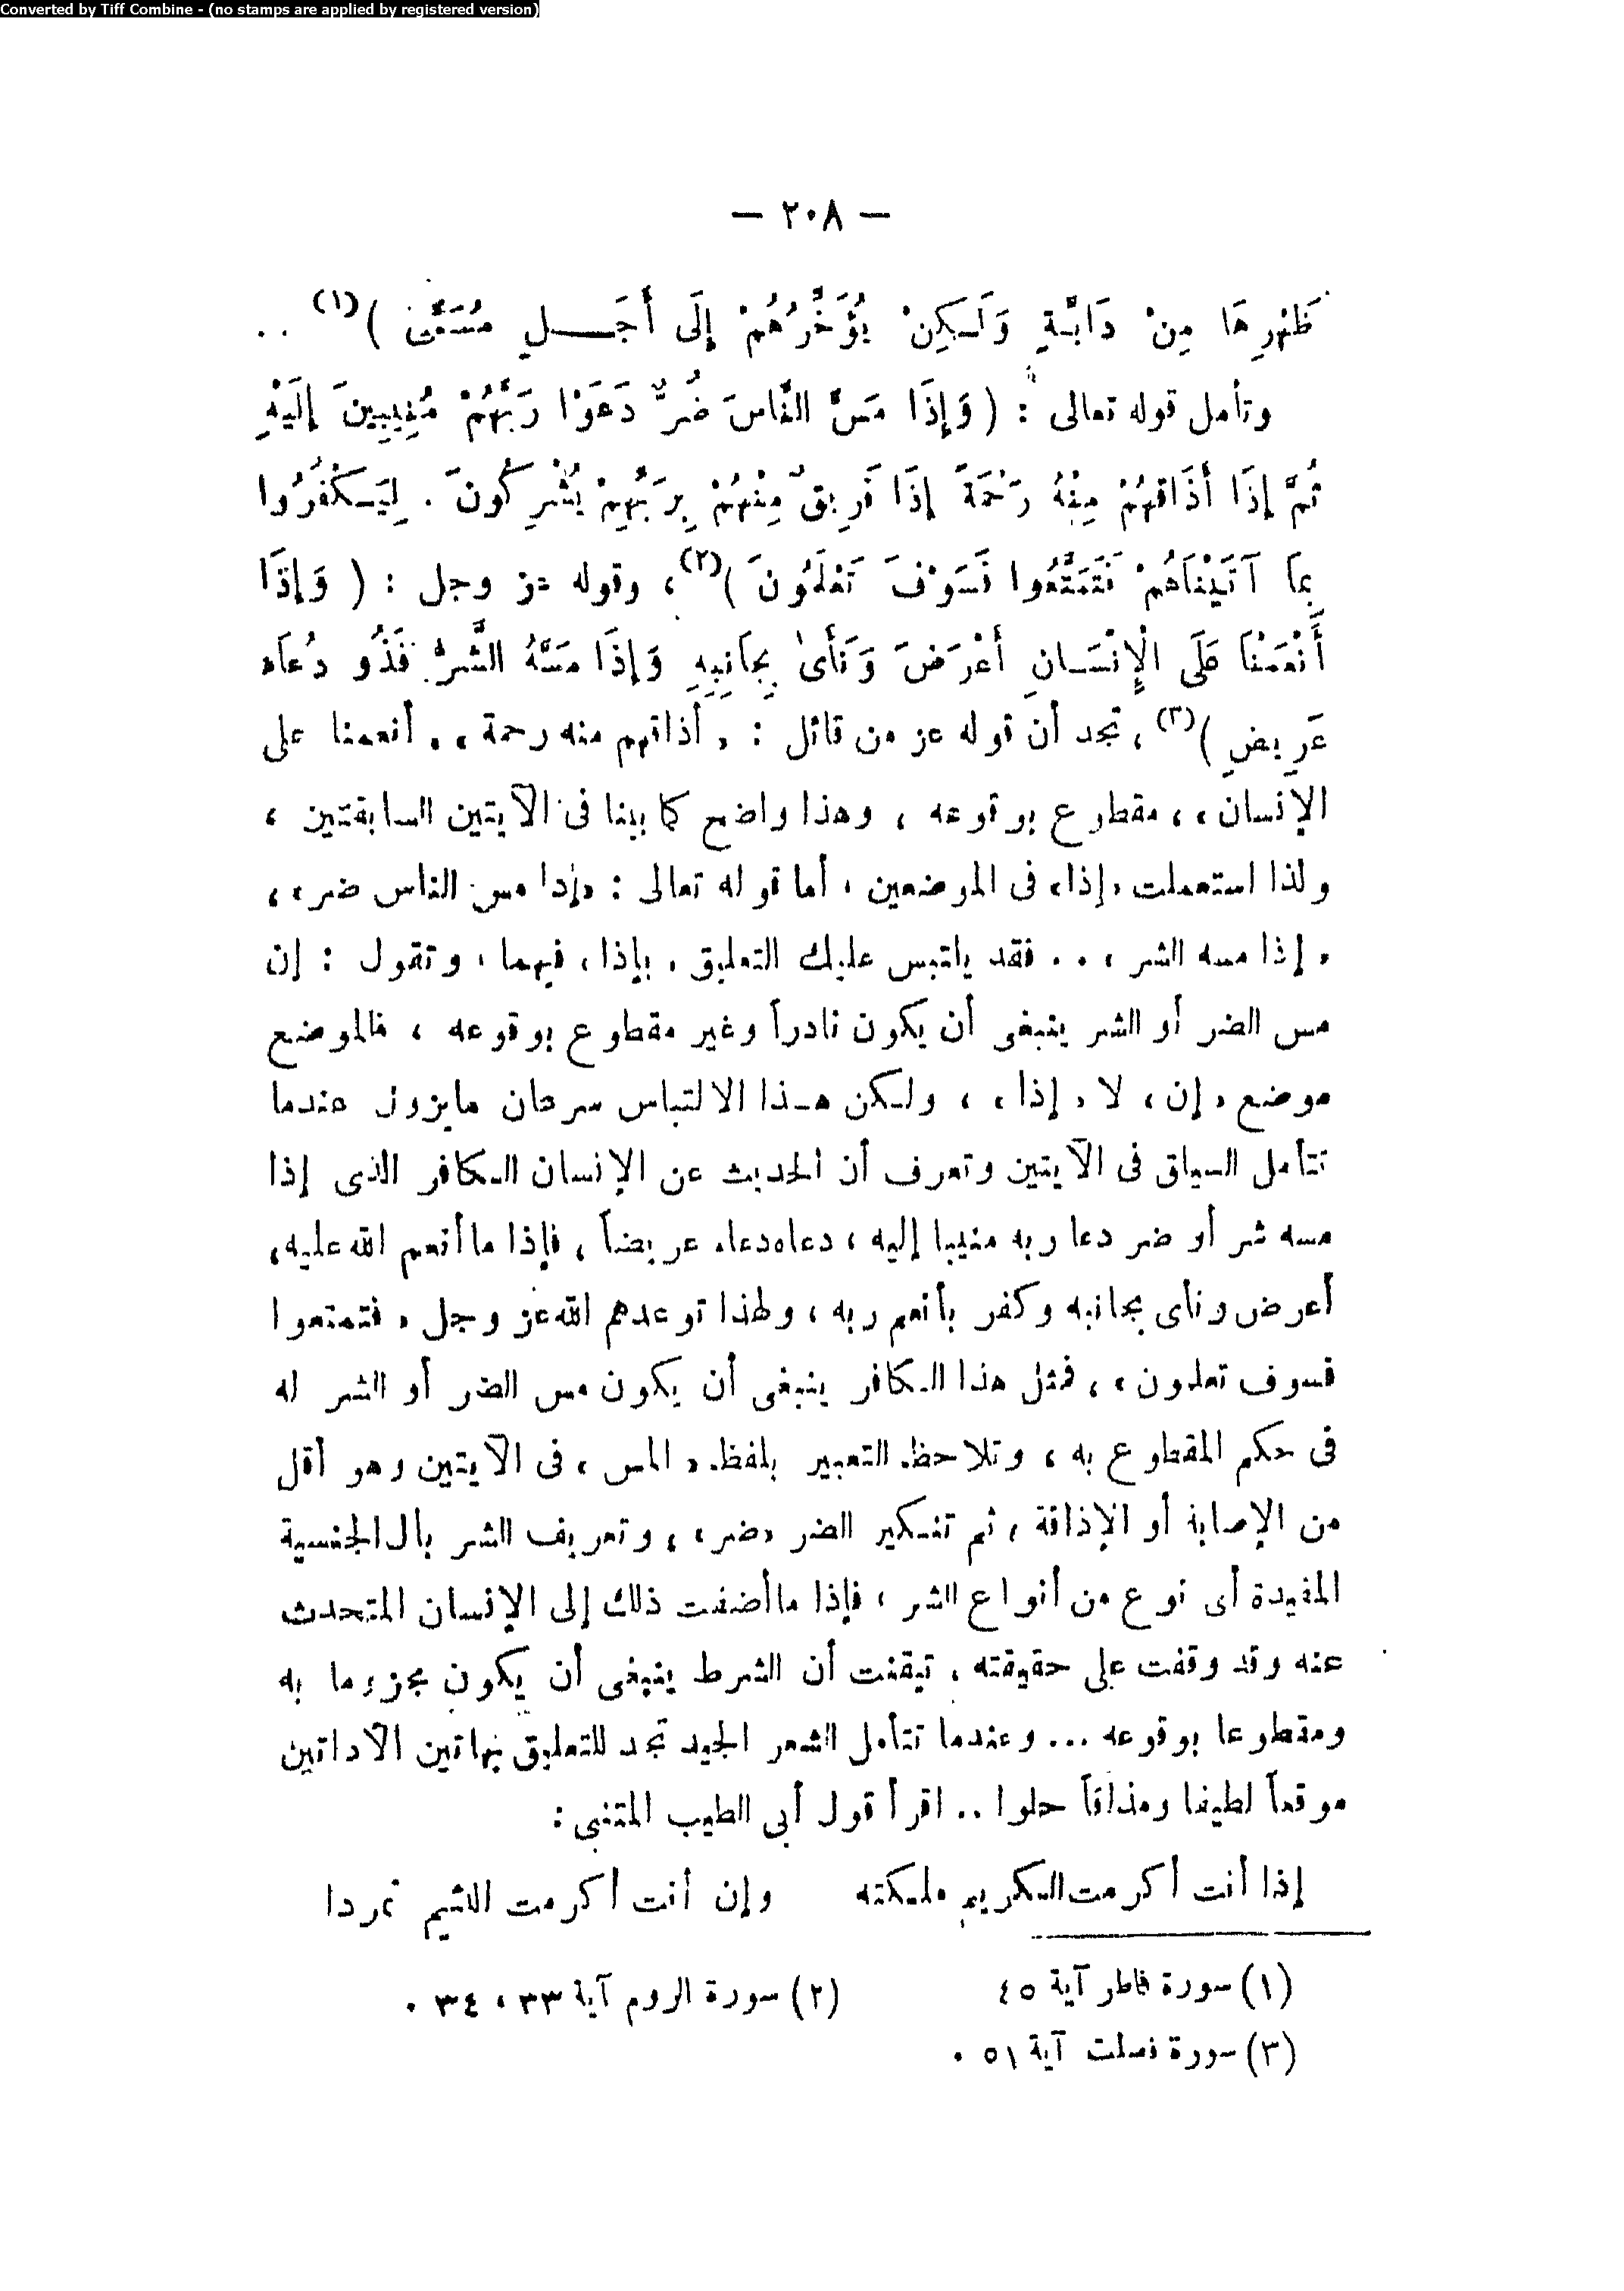 Converted by Tiff Combine - (no stamps are applied by registered version)
— ٢٠٨ —
ظَهْرِهَا مِنْ دَابَّةٍ وَلَـكِنْ يُؤَخِّرُهُمْ إِلَى أَجَـــلٍ مُسَمًّى )(١) ..
وتأمل قوله تعالى : ( وَإِذَا مَسَّ النَّاسَ ضُرٌّ دَعَوْا رَبَّهُمْ مُنِيبِينَ إِلَيْهِ
ثُمَّ إِذَا أَذَاقَهُمْ مِنْهُ رَحْمَةً إِذَا فَرِيقٌ مِنْهُمْ بِرَبِّهِمْ يُشْرِكُونَ . لِيَـكْفُرُوا
بِمَا آتَيْنَاهُمْ فَتَمَتَّعُوا فَسَوْفَ تَعْلَمُونَ )(٢) ، وقوله عز وجل : ( وَإِذَا
أَنْعَمْنَا عَلَى الْإِنْسَـانِ أَعْرَضَ وَنَأَىٰ بِجَانِبِهِ وَإِذَا مَسَّهُ الشَّرُّ فَذُو دُعَاء
عَرِيضٍ )(٣) ، تجد أن قوله عز من قائل : « أذاقهم منه رحمة » ، « أنعمنا على
الإنسان » ، مقطوع بوقوعه ، وهذا واضح كما بينا فى الآيتين السابقتين ،
ولذا استعملت «إذا» فى الموضعين ، أما قوله تعالى : «إذا مس الناس ضر» ،
« إذا مسه الشر » . . فقد يلتبس عليك التعليق « بإذا » فيهما ، وتقول : إن
مس الضر أو الشر ينبغى أن يكون نادراً وغير مقطوع بوقوعه ، فالموضع
موضع « إن » لا « إذا » ، ولـكن هـذا الالتباس سرعان مايزول عندما
تتأمل السياق فى الآيتين وتعرف أن الحديث عن الإنسان الـكافر الذى إذا
مسه شر أو ضر دعا ربه منيبا إليه ، دعاه دعاء عريضاً ، فإذا ما أنعم الله عليه ،
أعرض ونأى بجانبه وكفر بأنعم ربه ، ولهذا توعدهم الله عز وجل « فتمتعوا
فسوف تعلمون » ، فمثل هذا الـكافر ينبغى أن يكون مس الضر أو الشر له
فى حكم المقطوع به ، وتلاحظ التعبير بلفظ « المس » فى الآيتين وهو أقل
من الإصابة أو الإذاقة ، ثم تنـكير الضر «ضر» ، وتعريف الشر بال الجنسية
المفيدة أى نوع من أنواع الشر ، فإذا ما أضفت ذلك إلى الإنسان المتحدث
عنه وقد وقفت على حقيقته ، تيقنت أن الشرط ينبغى أن يكون مجزوما به
ومقطوعا بوقوعه ... وعندما تتأمل الشعر الجيد تجد للتعليق بهاتين الأداتين
موقعاً لطيفا ومذاقاً حلوا .. اقرأ قول أبى الطيب المتنبى :
إذا أنت أكرمت الـكريم ملـكته وإن أنت أكرمت اللئيم تمردا
(١) سورة فاطر آية ٤٥ (٢) سورة الروم آية ٣٣ ، ٣٤ .
(٣) سورة فصلت آية ٥١ .